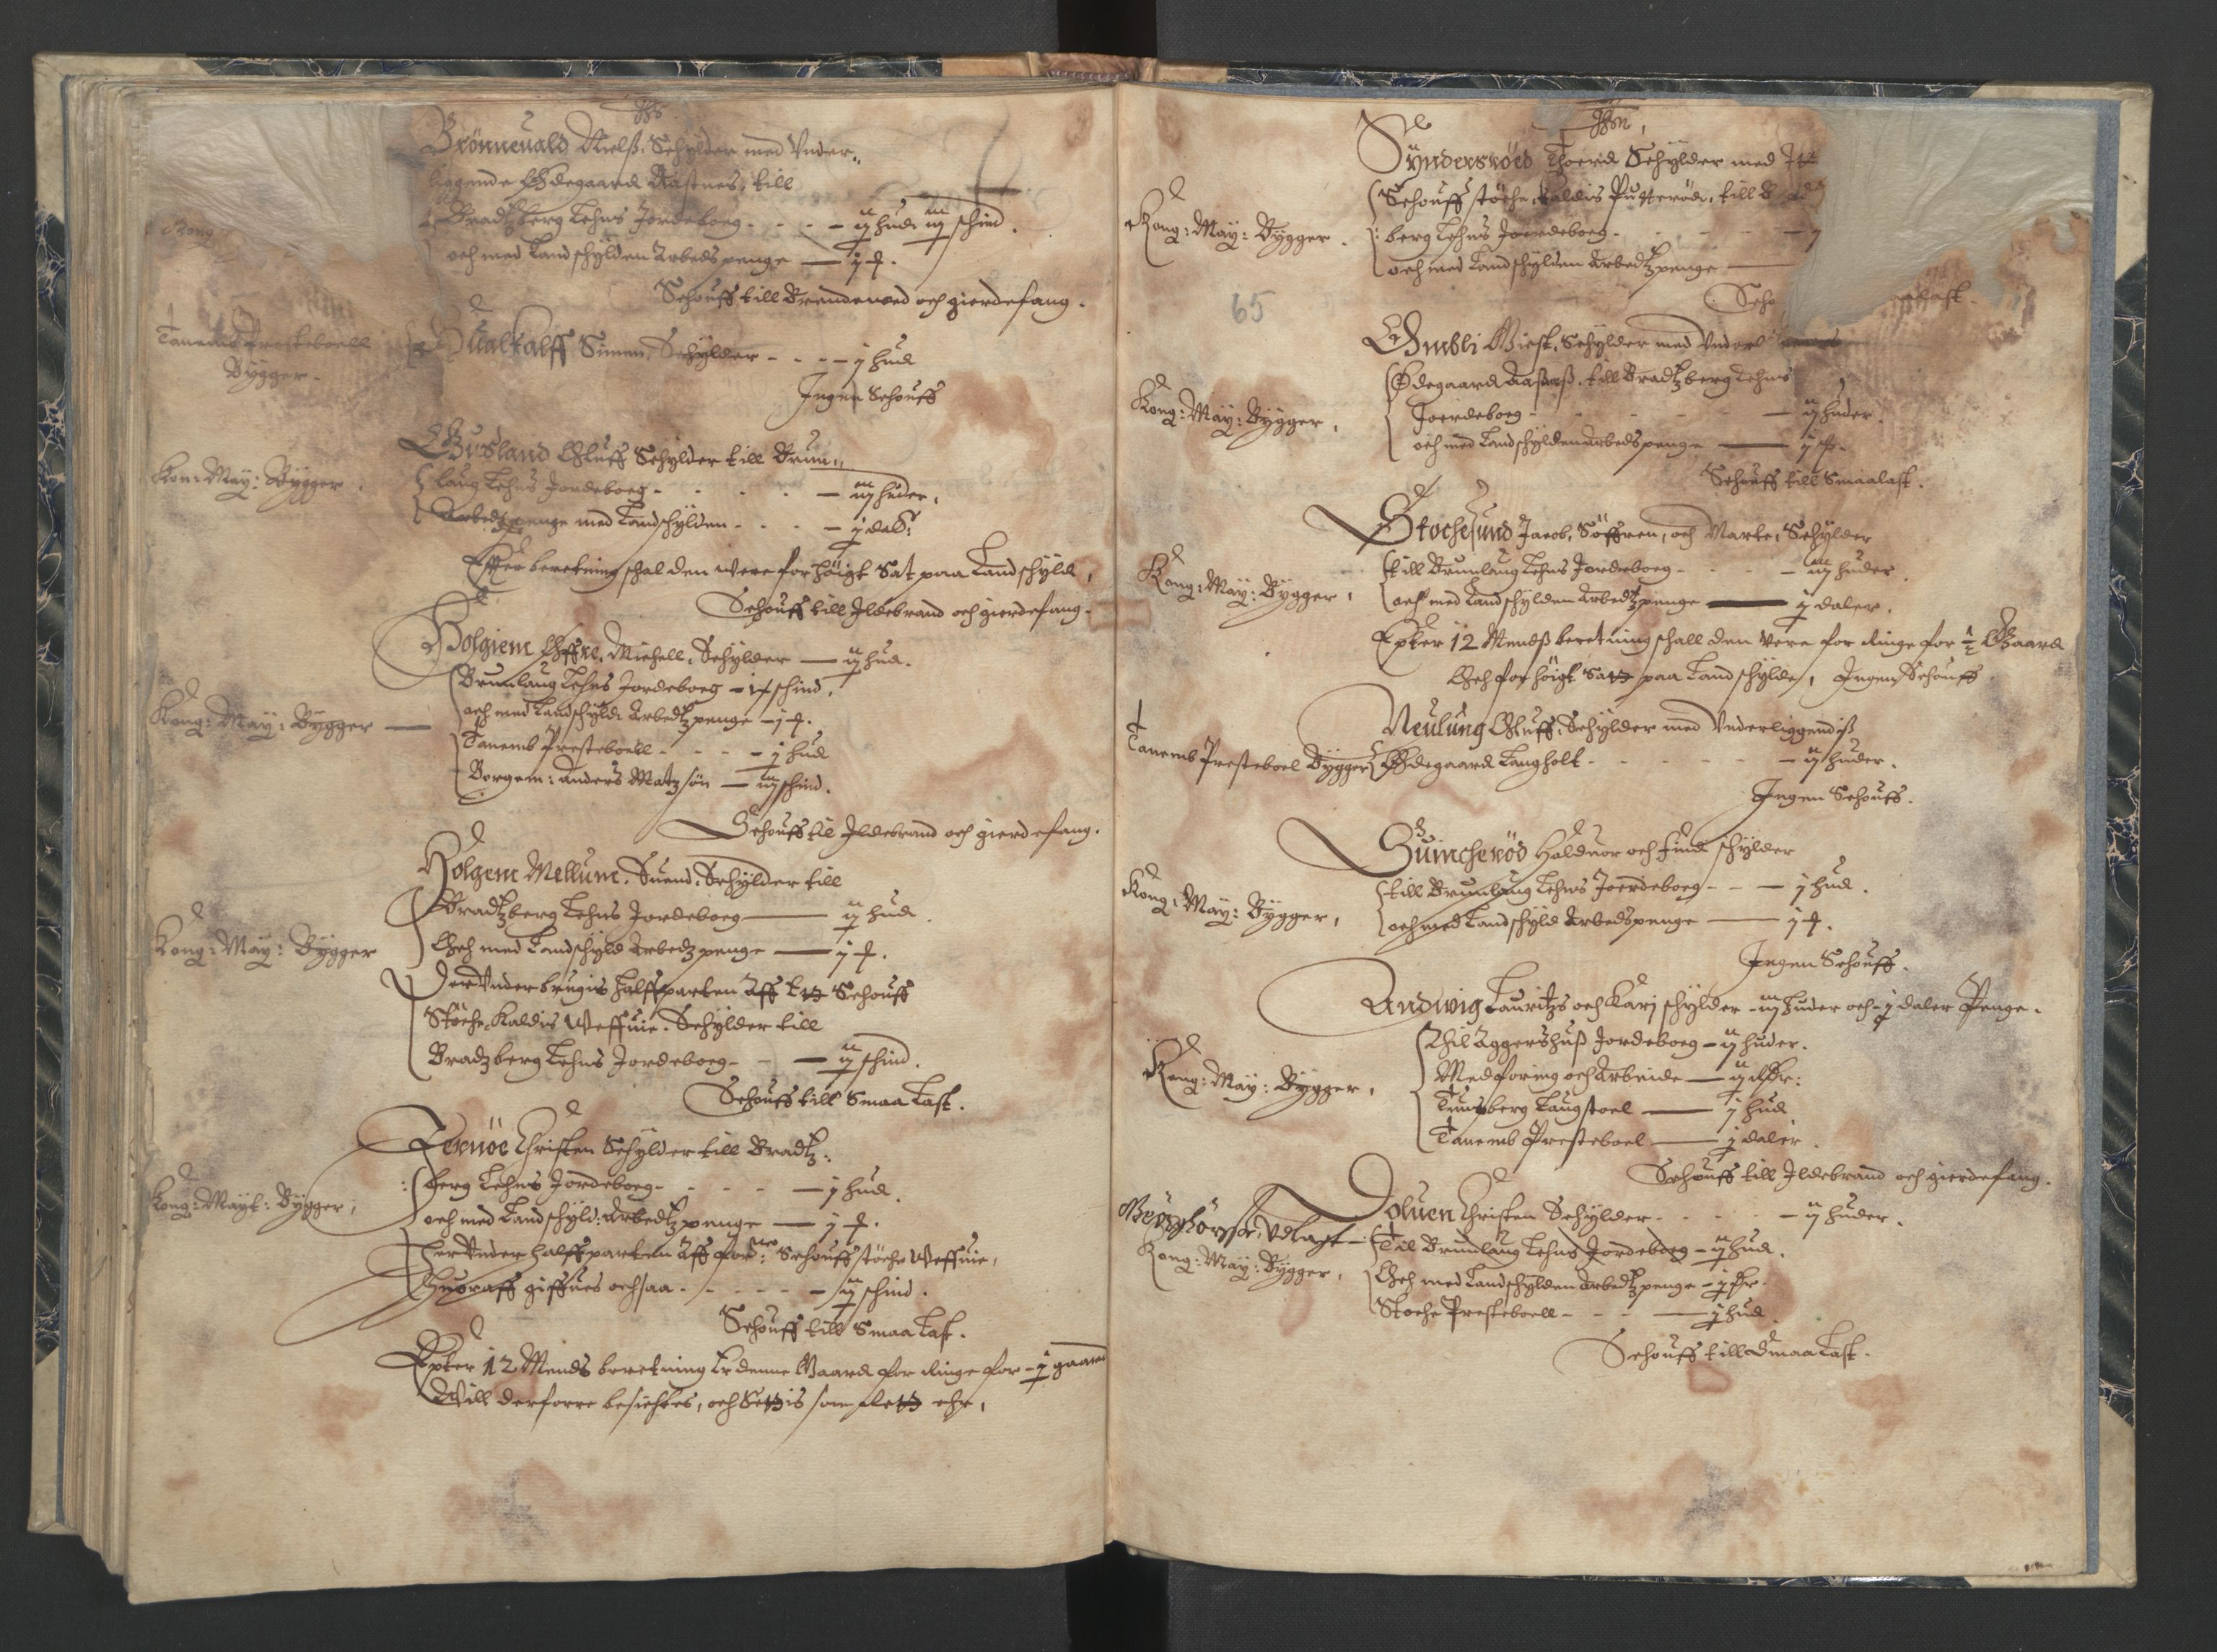 Brönneuald Nielß. Schylder med Vnder,,
liggende Ødegaard Aastnes, till
Bradtzberg Lehns Jordeboeg - - - ij hud iij schind.
och med Landschylden Arbeds penge — j ф.
Schouff till Brendeued och gierdefang.
Tanemb Presteboell
Bygger.
Hualkalff Simen, Schylder - - - j hud
Ingen Schouff
Kon: May: Bygger.
Gusland Oluff Schylder till Brun,,
laug Lehns Jordeboeg - - - - iij huder.
Arbedtzpenge med Landschylden - - - j dalr:
Effter beretning schal den were for höigt Sat paa Landschyld,
Schouff till Jldebrand och gierdefang.
Kong: May: Bygger —
Holgiem Öffre, Michell, Schylder — ij hud.
Brunlaug Lehns Jordeboeg - schind,
och med Landschyld Arbedtzpenge - j ф.
Tanemb Presteboell - - - - j hud
Borgem: Anders Matzsön — iij schind.
Schouff til Jldebrand och gierdefang.
Kong: May: Bygger
Holgem Mellum, Suend, Schylder till
Bradtzberg Lehns Jordeboeg — ij hud.
Och med Landschyld Arbedtz penge — j ф.
Der Vnder brugis halffparten Aff Schouff
Stöche Kaldis Weffuie. Schylder till
Bradtzberg Lehns Jordeboeg - - ij schind.
Schouff till Smaa Last.
Kong: Mayt: Bygger,
Fernöe Christen Schylder till Bradtz:
:berg Lehns Jordeboeg - - - - j hud.
och med Landschyld: Arbedtz penge — j ф.
Her Vnder halffparten Aff forne: Schouffstöche Weffuie,
Huoraff giffues ochsaa - - - - ij schind.
Schouff till Smaa Last.
Epter 12 Mends beretning Er denne Gaard for Ringe for - j gaard
Will derforre besichtes, och Settis som Rett ehr,
65
Kong: May: Bygger.
Synderröed Thoerd Schylder med
Schouffstöche, kaldis Putteröd, till
:berg Lehns Joerdeboeg - - - -
och med Landschylden Arbedtzpenge —
Scho last.
Kong: May: Bygger,
Ombli Giest, Schylder med
Ødegaard Aasnäß, till Bradtzberg Lehns
Joerdeboeg - - - - — ij huder.
och med Landschylden Arbeds penge — j ф.
Schouff till Smaalast.
Kong: May: Bygger,
Stochesund Jacob, Söffren, och Marte, Schylder
till Brunlaug Lehns Jordeboeg - - - iij huder.
och med Landschylden Arbedtzpenge — j daler.
Epter 12 Mendß beretning schall den vere for Ringe for ½ Gaard
Och for höigt Satt paa Landschylde, Ingen Schouff.
Tanemb Presteboel Bygger
Neulung Oluff, Schylder med Vnderliggendiß
Ødegaard Langholt - - - - ij huder.
Ingen Schouff.
Kong: May: Bygger,
Guincheröd Halduor och Find schylder
till Brunlaug Lehns Joerdeboeg - - - j hud.
och med Landschyld Arbeds penge — j ф.
Ingen Schouff.
Kong: May: Bygger,
Andwig Lauritzs och Karj schylder - iij huder och - j daler Penge.
Thil Aggershuß Jordeboeg - ij huder.
Med foring och Arbeide — ij
Tunsberg Laugstoel — j hud
Tanemb Presteboel — j daler.
Schouff till Jldebrand och gierdefang.
Kong: May: Bygger,
Doluen Christen Schylder - - - - ij huder.
Til Brunlaug Lehns Jordeboeg - j hud.
Och med Landschylden Arbedtz penge - j
Stoche Presteboell - - - — j hud
Schouff till Smaa Last.